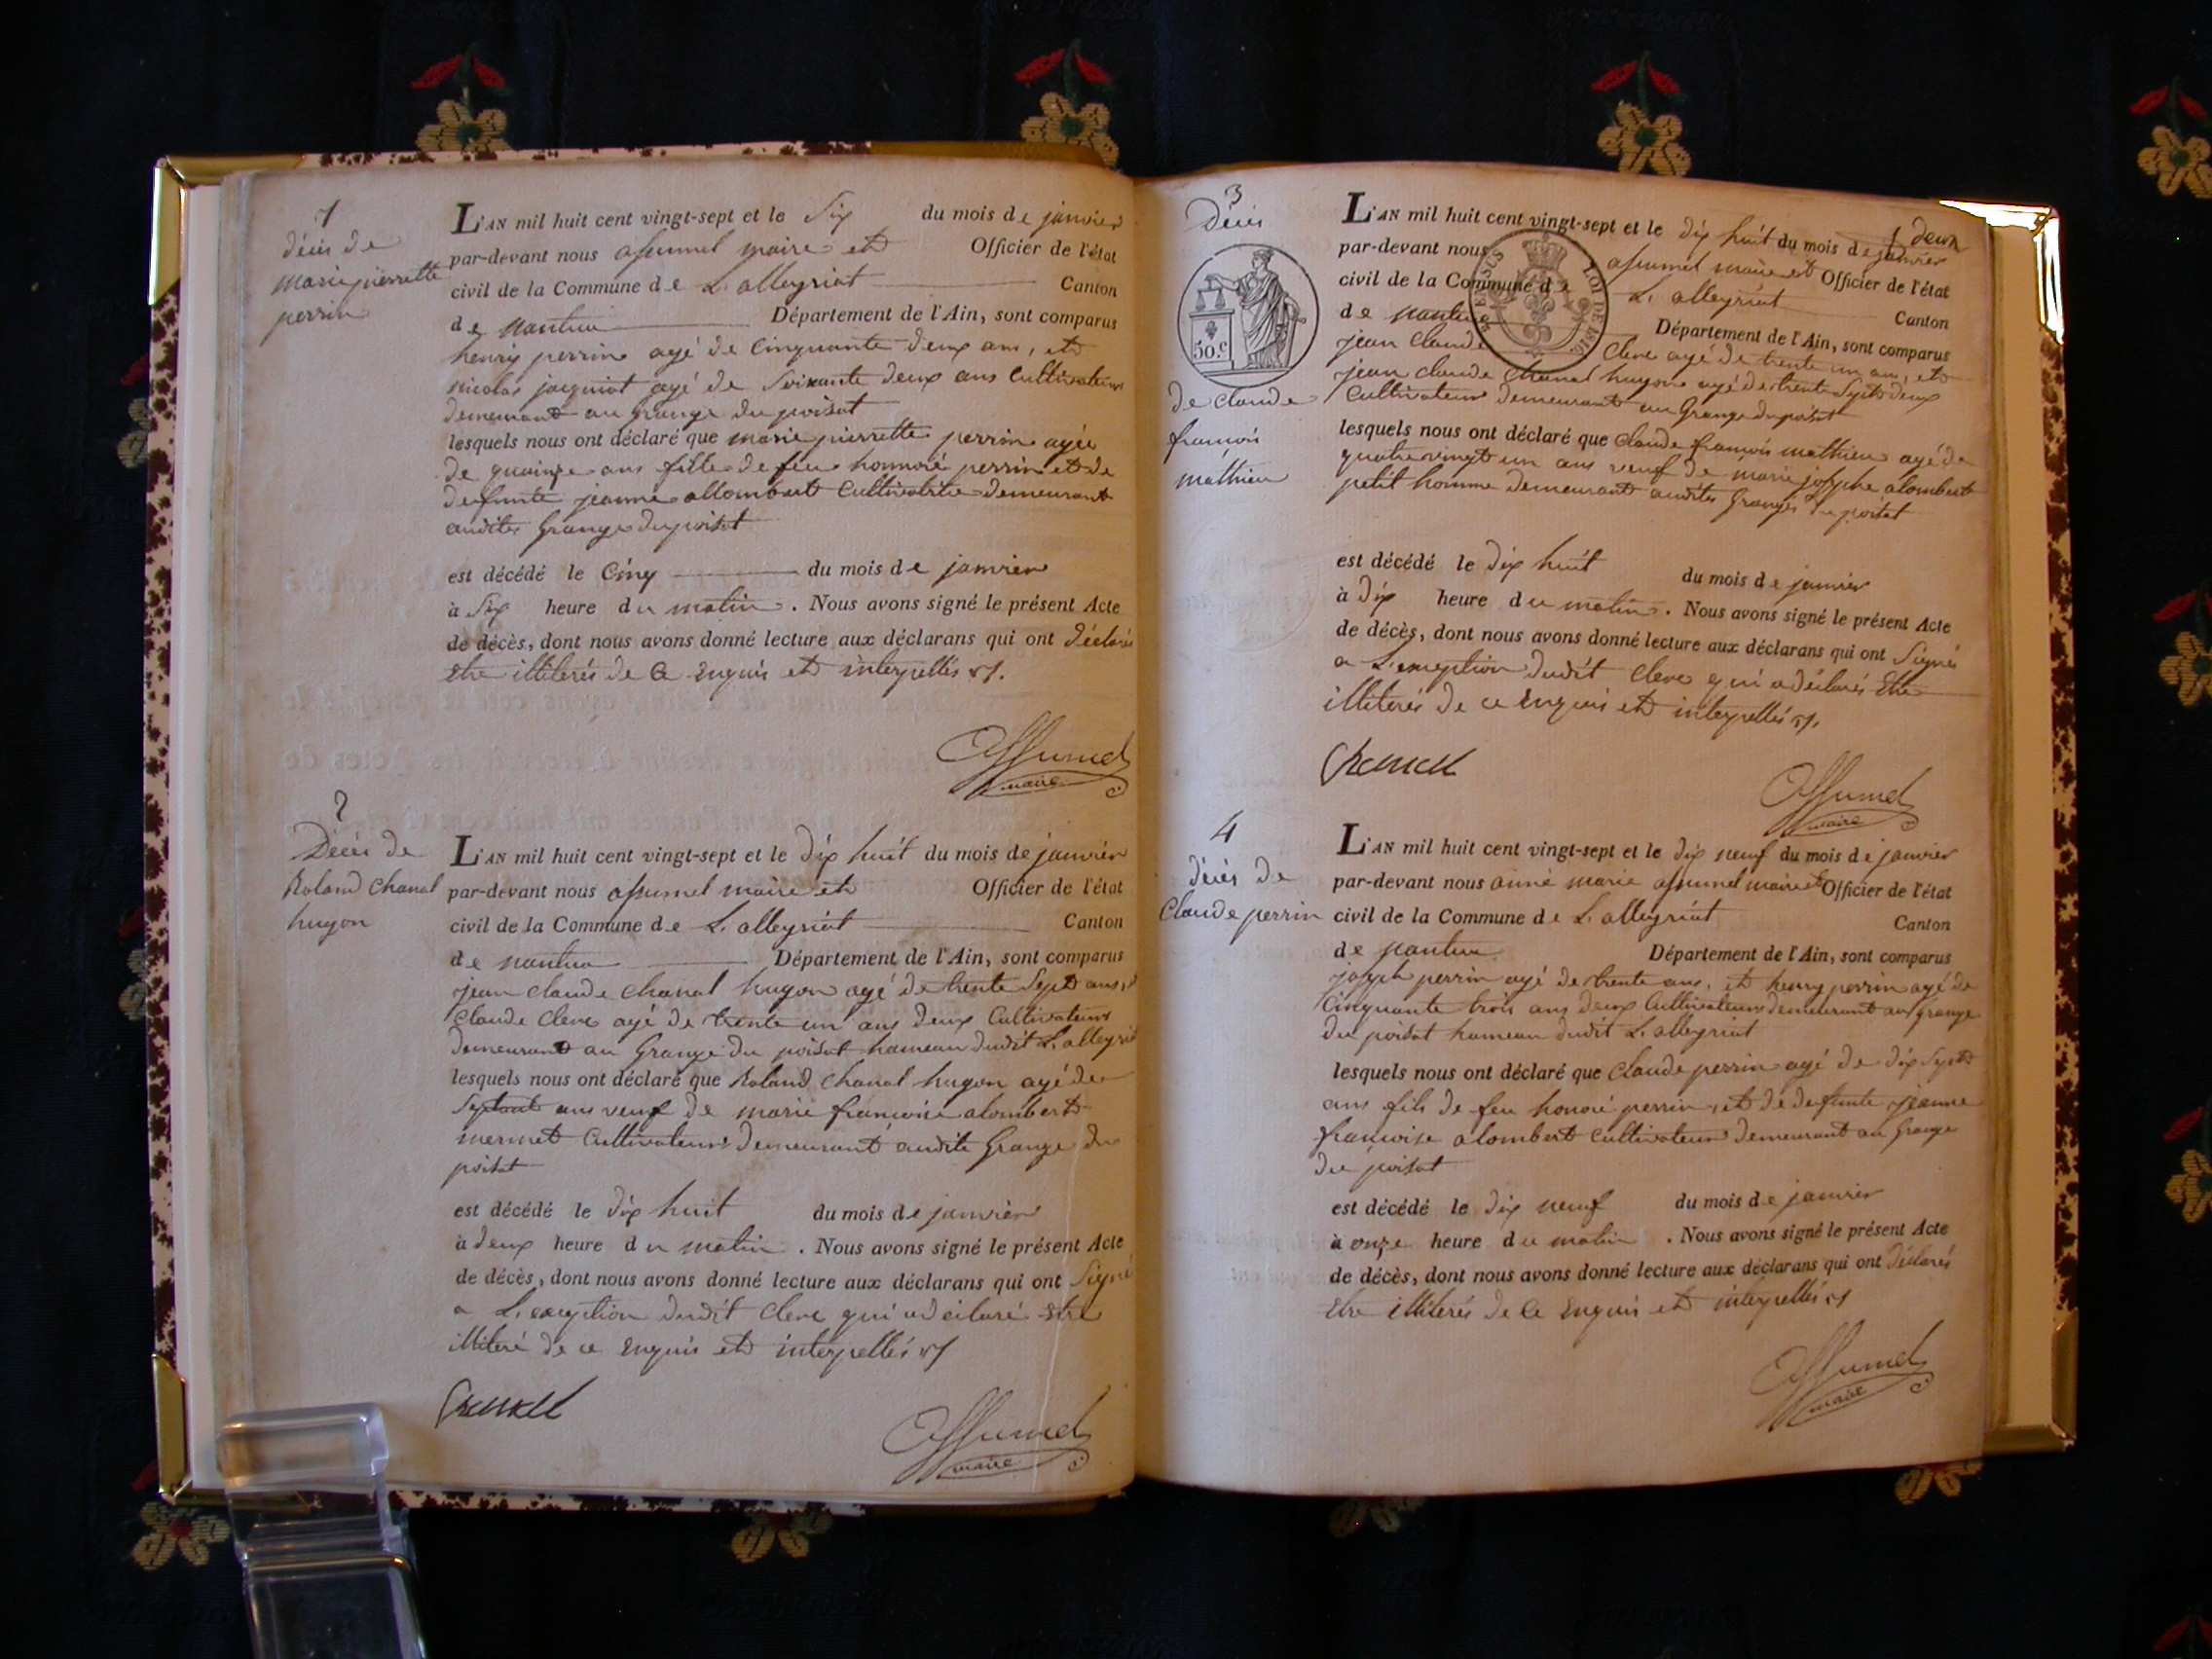 1
décès de
marie pierrette
perrin
L'AN mil huit cent vingt-sept et le Six du mois de janvier
par-devant nous assumel maire et Officier de l'état
civil de la Commune de L'alleyriat Canton
de nantua Département de l'Ain, sont comparus
henry perrin agé de Cinquante deux ans, et
nicolas jacquiot agé de Soixante deux ans Cultivateurs
demeurant au Grange du poisat
lesquels nous ont déclaré que marie pierrette perrin agée
de quainze ans fille de feu honnoré perrin et de
defunte jeanne allombert Cultivatrice demeurant
audites Grange du poisat
est décédé le Cinq du mois de janvier
à Six heure du matin. Nous avons signé le présent Acte
de décès, dont nous avons donné lecture aux déclarans qui ont déclarés
Etre illiterés de Ce Enquis et interpellés
Assumel
maire
2
Décès de
Roland Chanal
hugon
L'AN mil huit cent vingt-sept et le dix huit du mois de janvier
par-devant nous assumel maire et Officier de l'état
civil de la Commune de L'alleyriat Canton
de nantua Département de l'Ain, sont comparus
jean Claude Chanal hugon agé de trente Sept ans, et
Claude Clerc agé de trente un ans deux Cultivateurs
demeurant au Grange du poisat hameau dudit L'alleyriat
lesquels nous ont déclaré que Roland Chanal hugon agé de
Septant ans veuf de marie francoise alombert
mermet Cultivateur demeurant audite Grange du
poisat
est décédé le dix huit du mois de janvier
à deux heure du matin. Nous avons signé le présent Acte
de décès, dont nous avons donné lecture aux déclarans qui ont Signé
a L'exception dudit Clerc qui a déclaré Etre
illiteré de ce Enquis et interpellés
Assumel
maire
deux
3
Décès
de claude
francois
mathieu
50.c
LOI DE 1816
L'AN mil huit cent vingt-sept et le dix huit du mois de janvier
par-devant nous assumel maire et Officier de l'état
civil de la Commune de L'alleyriat Canton
de nantua Département de l'Ain, sont comparus
jean Claude Clerc agé de trente un ans, et
jean claude Chanal hugon agé de trente Sept deux
Cultivateurs demeurant au Grange du poisat
lesquels nous ont déclaré que Claude francois mathieu agé de
quatre vingt un ans veuf de marie josephe alombert
petit homme demeurant audites Granges du poisat
est décédé le dix huit du mois de janvier
à dix heure du matin. Nous avons signé le présent Acte
de décès, dont nous avons donné lecture aux déclarans qui ont Signés
a L'exception dudit Clerc qui a déclarés Etre
illiterés de ce Enquis et interpellés
Assumel
maire
4
décès de
Claude perrin
L'AN mil huit cent vingt-sept et le dix neuf du mois de janvier
par-devant nous anné marie assumel maire et Officier de l'état
civil de la Commune de L'alleyriat Canton
de nantua Département de l'Ain, sont comparus
joseph perrin agé de trente ans, et henry perrin agé de
Cinquante trois ans deux Cultivateurs demeurant aux Grange
du poisat hameau dudit L'alleyriat
lesquels nous ont déclaré que Claude perrin agé de dix Sept
ans fils de feu honoré perrin, et de defunte jeanne
francoise alombert Cultivateur demeurant au Grange
du poisat
est décédé le dix neuf du mois de janvier
à onze heure du matin. Nous avons signé le présent Acte
de décès, dont nous avons donné lecture aux déclarans qui ont déclarés
Etre illiterés de Ce Enquis et interpellés
Assumel
maire